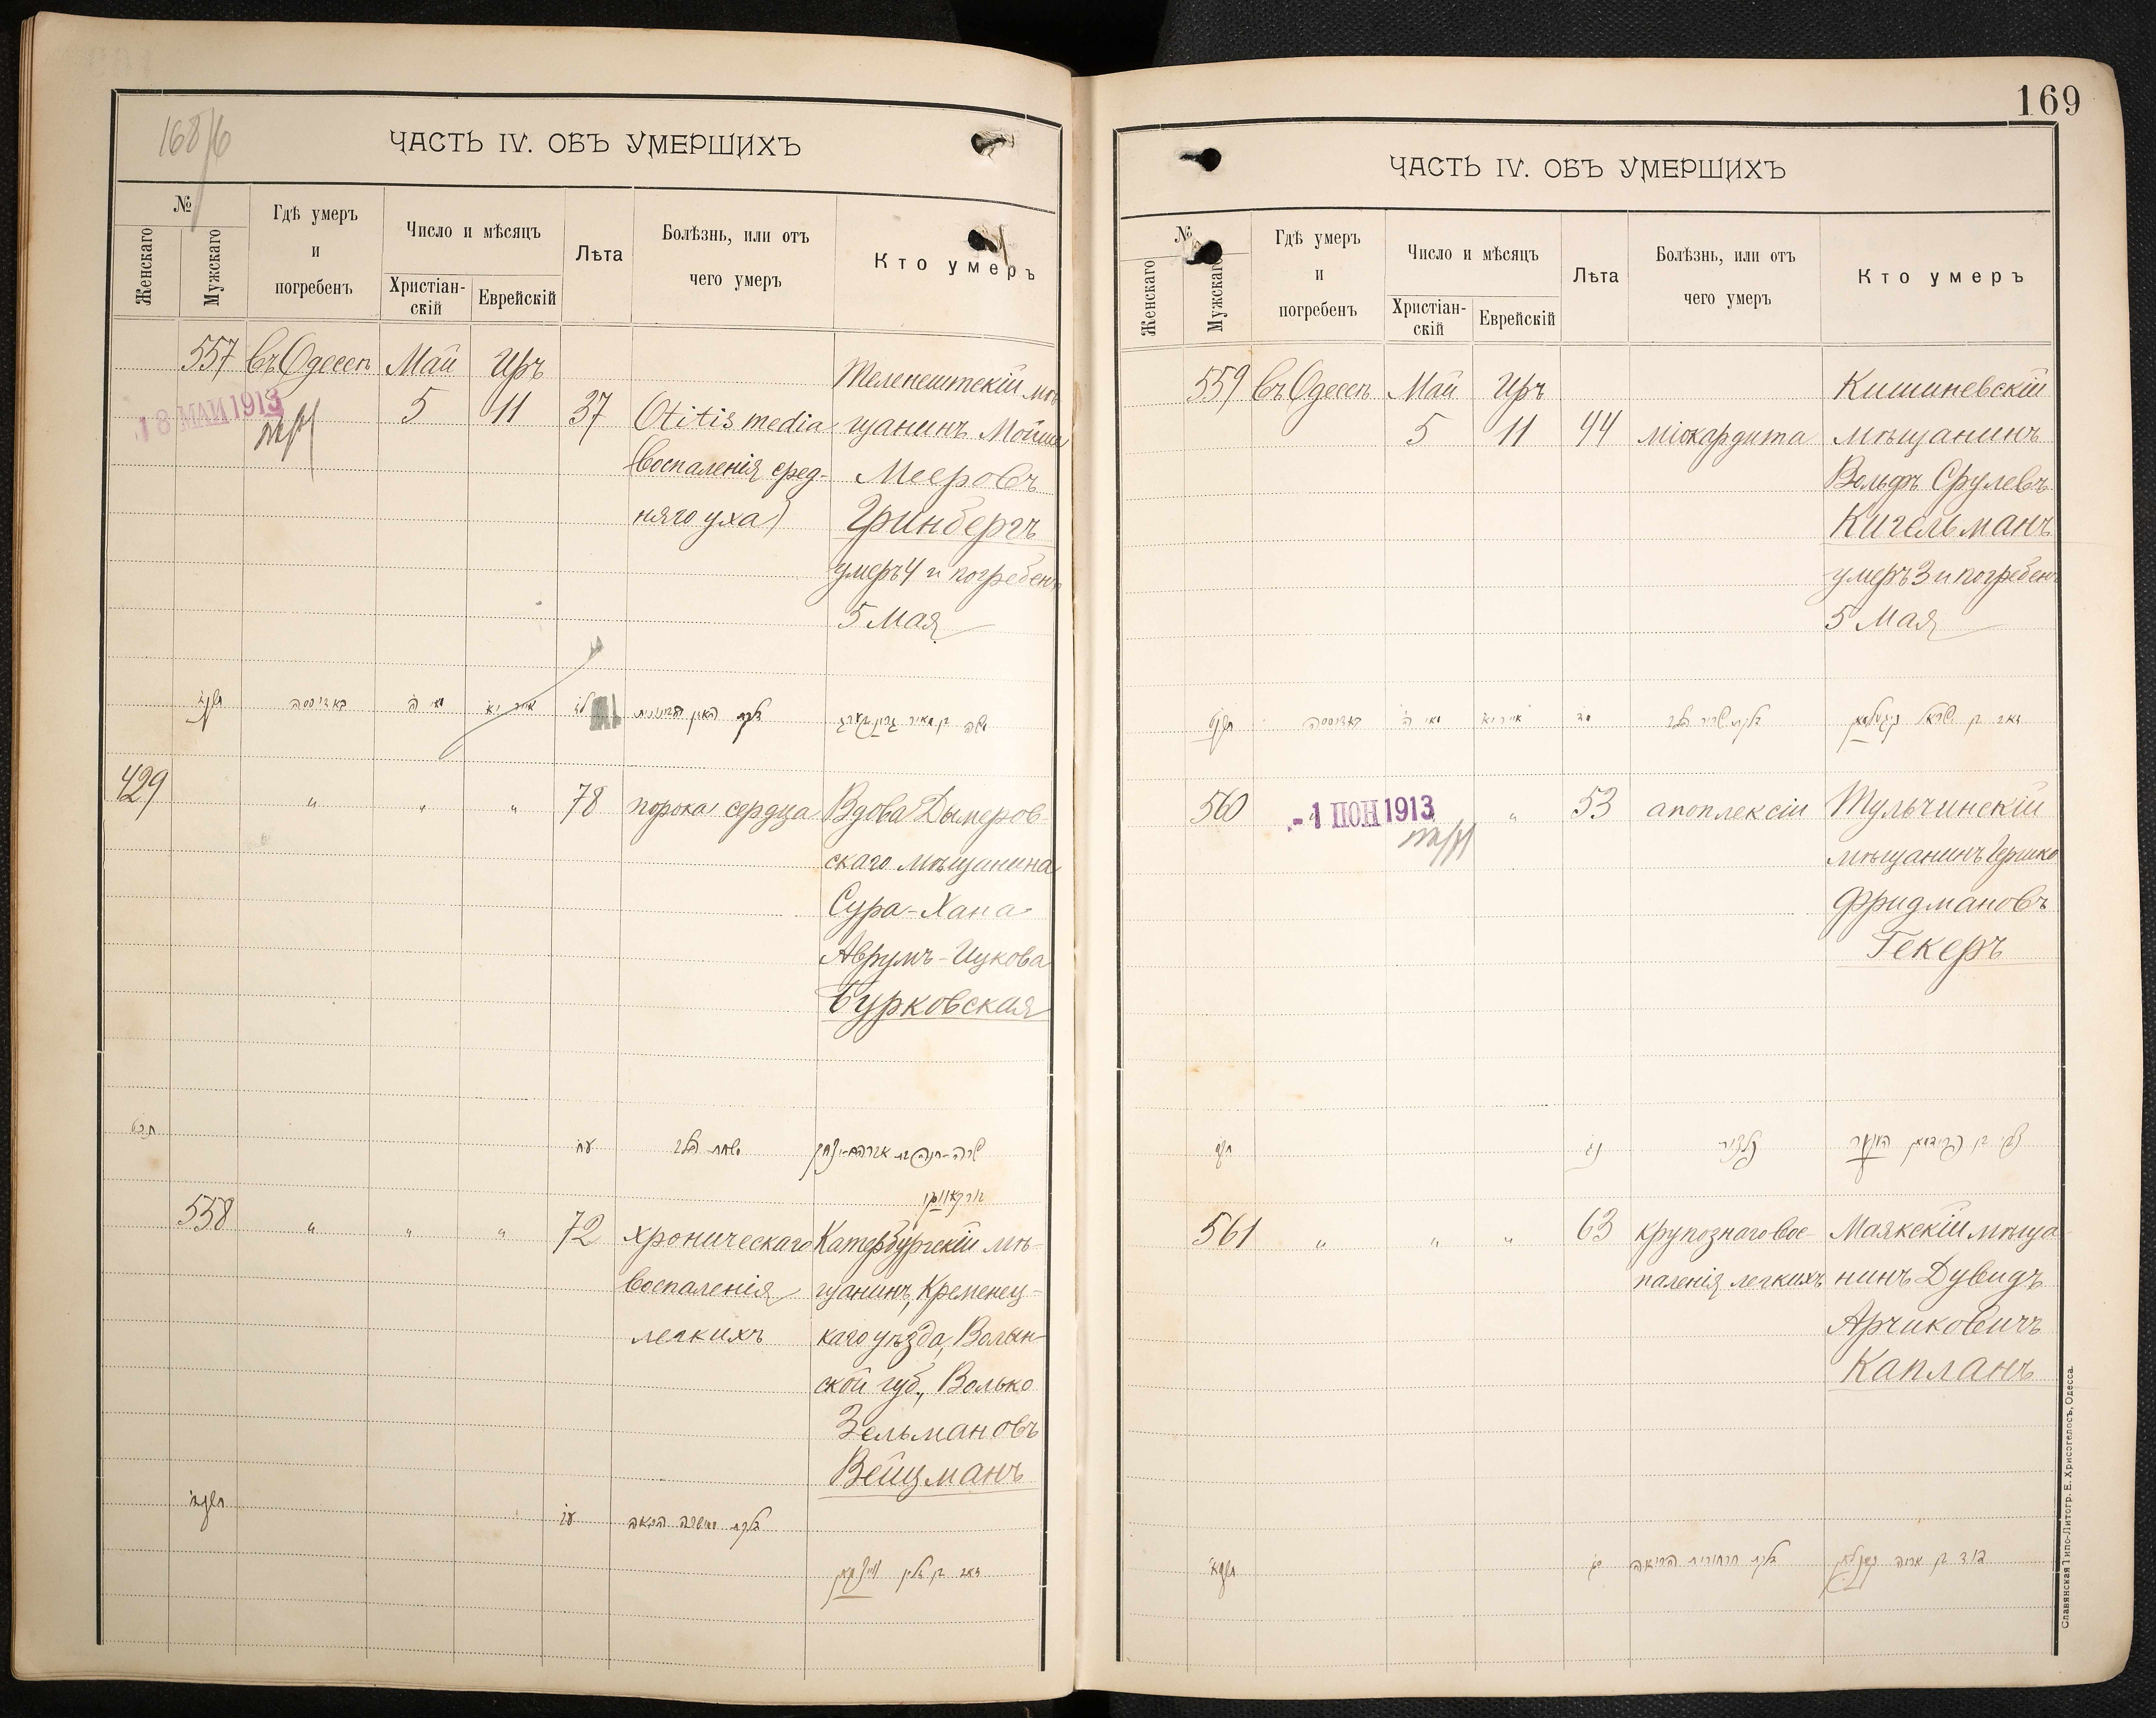 168/6
ЧАСТЬ IV. ОБЪ УМЕРШИХЪ
№
Женскаго
Мужскаго
Гдѣ умеръ
и
погребенъ
Число и мѣсяцъ
Христіан-
скій
Еврейскій
Лѣта
Болѣзнь, или отъ
чего умеръ
Кто умеръ
557 въ Одессѣ Май Иръ
18 МАЙ 1913
5 11 37 Otitis media
(воспаленія сред-
няго уха)
Теленештскій мѣ-
щанинъ Мойше
Мееровъ
Гринбергъ
умеръ 4 и погребенъ
5 Мая
באדיססה מאי ה' אייר יא
משה בן מאיר גרינבערג
429 " " " 78 порока сердца
Вдова Дымеров-
скаго мѣщанина
Сура-Хана
Аврумъ-Ицкова
Бурковская
תכט
עח
שרה-חנה בת אברהם-יצחק
558 " " " 72 хроническаго
воспаленія
легкихъ
Катербургскій мѣ-
щанинъ, Кременец-
каго уѣзда, Волын-
ской губ., Волько
Зельмановъ
Вейцманъ
169
ЧАСТЬ IV. ОБЪ УМЕРШИХЪ
№
Женскаго
Мужскаго
Гдѣ умеръ
и
погребенъ
Число и мѣсяцъ
Христіан-
скій
Еврейскій
Лѣта
Болѣзнь, или отъ
чего умеръ
Кто умеръ
559 въ Одессѣ Май Иръ
5 11 44 міокардита
Кишиневскій
мѣщанинъ
Вольфъ Срулевъ
Кигельманъ
умеръ 3 и погребенъ
5 Мая
באדיססה מאי ה' אייר יא מד
זאב בן ישראל קיגעלמאן
560 " " 53 апоплексіи
-1 ІЮН 1913
Тульчинскій
мѣщанинъ Гершко
Фридмановъ
Гекеръ
נג
561 " " " 63 крупознаго вос-
паленія легкихъ
Маякскій мѣща-
нинъ Дувидъ
Арчиковичъ
Капланъ
דוד בן אריה קאפלאן
Славянская Типо-Литогр. Е. Хрисогелосъ, Одесса.